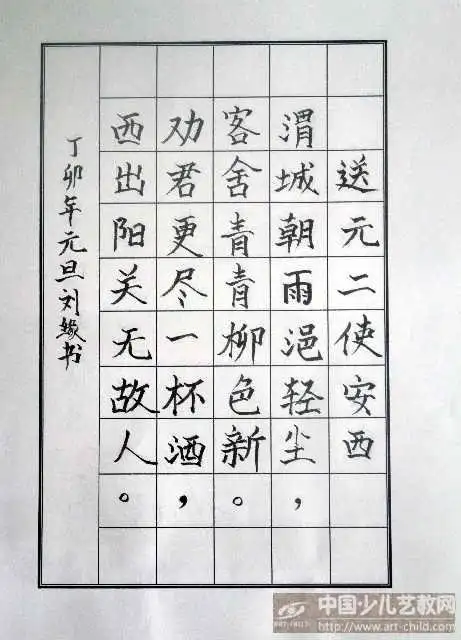 送元二使安西
渭城朝雨浥轻尘，
客舍青青柳色新。
劝君更尽一杯酒，
西出阳关无故人。
丁卯年元旦刘缘书
中国·少儿艺教网
http://www.art-child.com